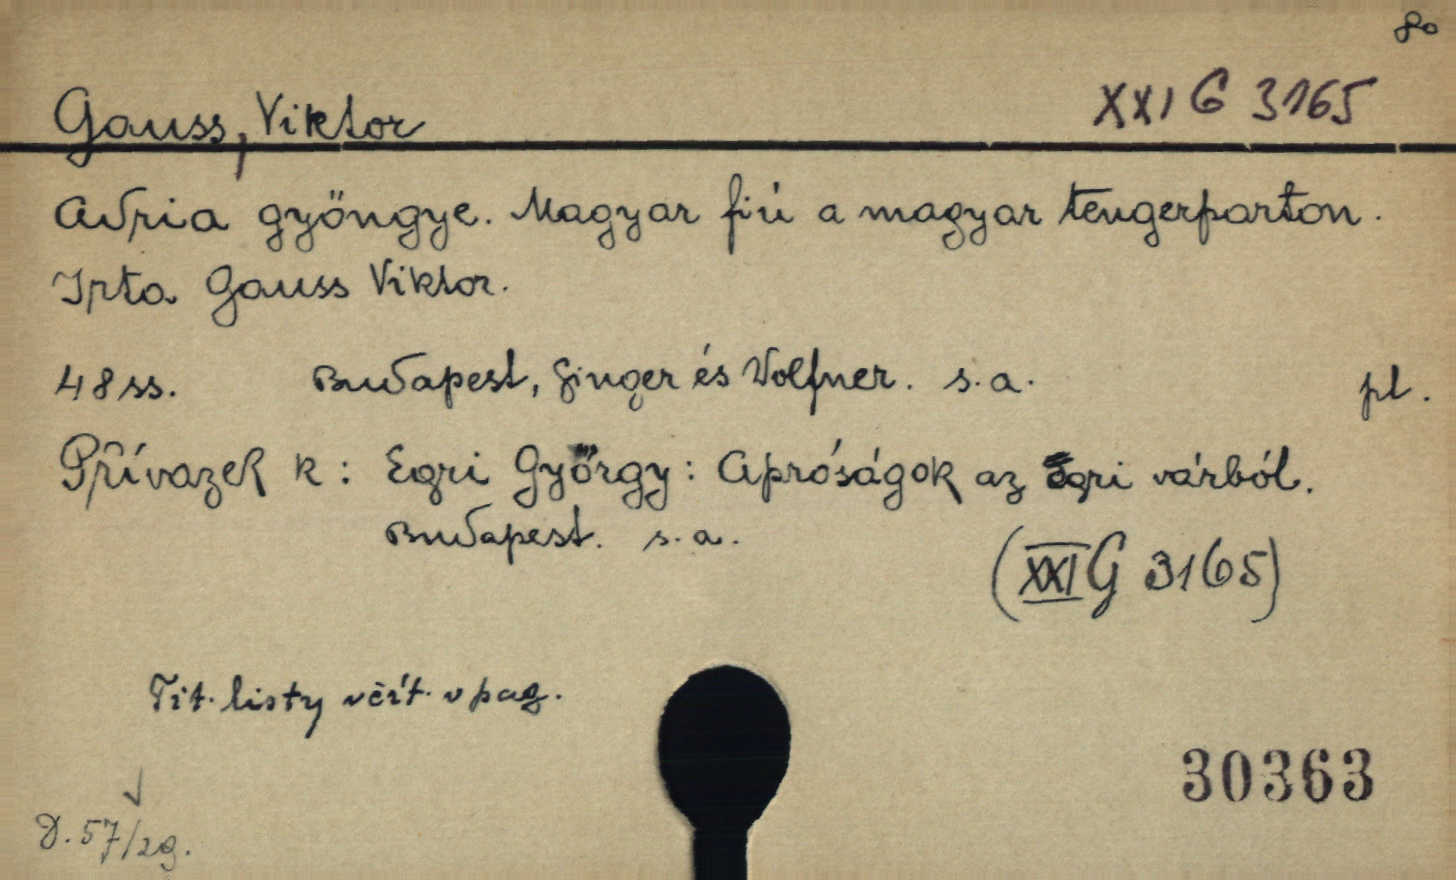 8°
Gauss, Viktor XXI G 3165
Adria gyöngye. Magyar fiú a magyar tengerparton.
Irta Gauss Viktor.
48 ss. Budapest, Singer és Wolfner. s. a. pl.
Přívazek k: Egri György: Apróságok az Egri várból.
Budapest. s. a.
(XXI G 3165)
Tit. listy včít. v pag.
30363
D. 57/29.